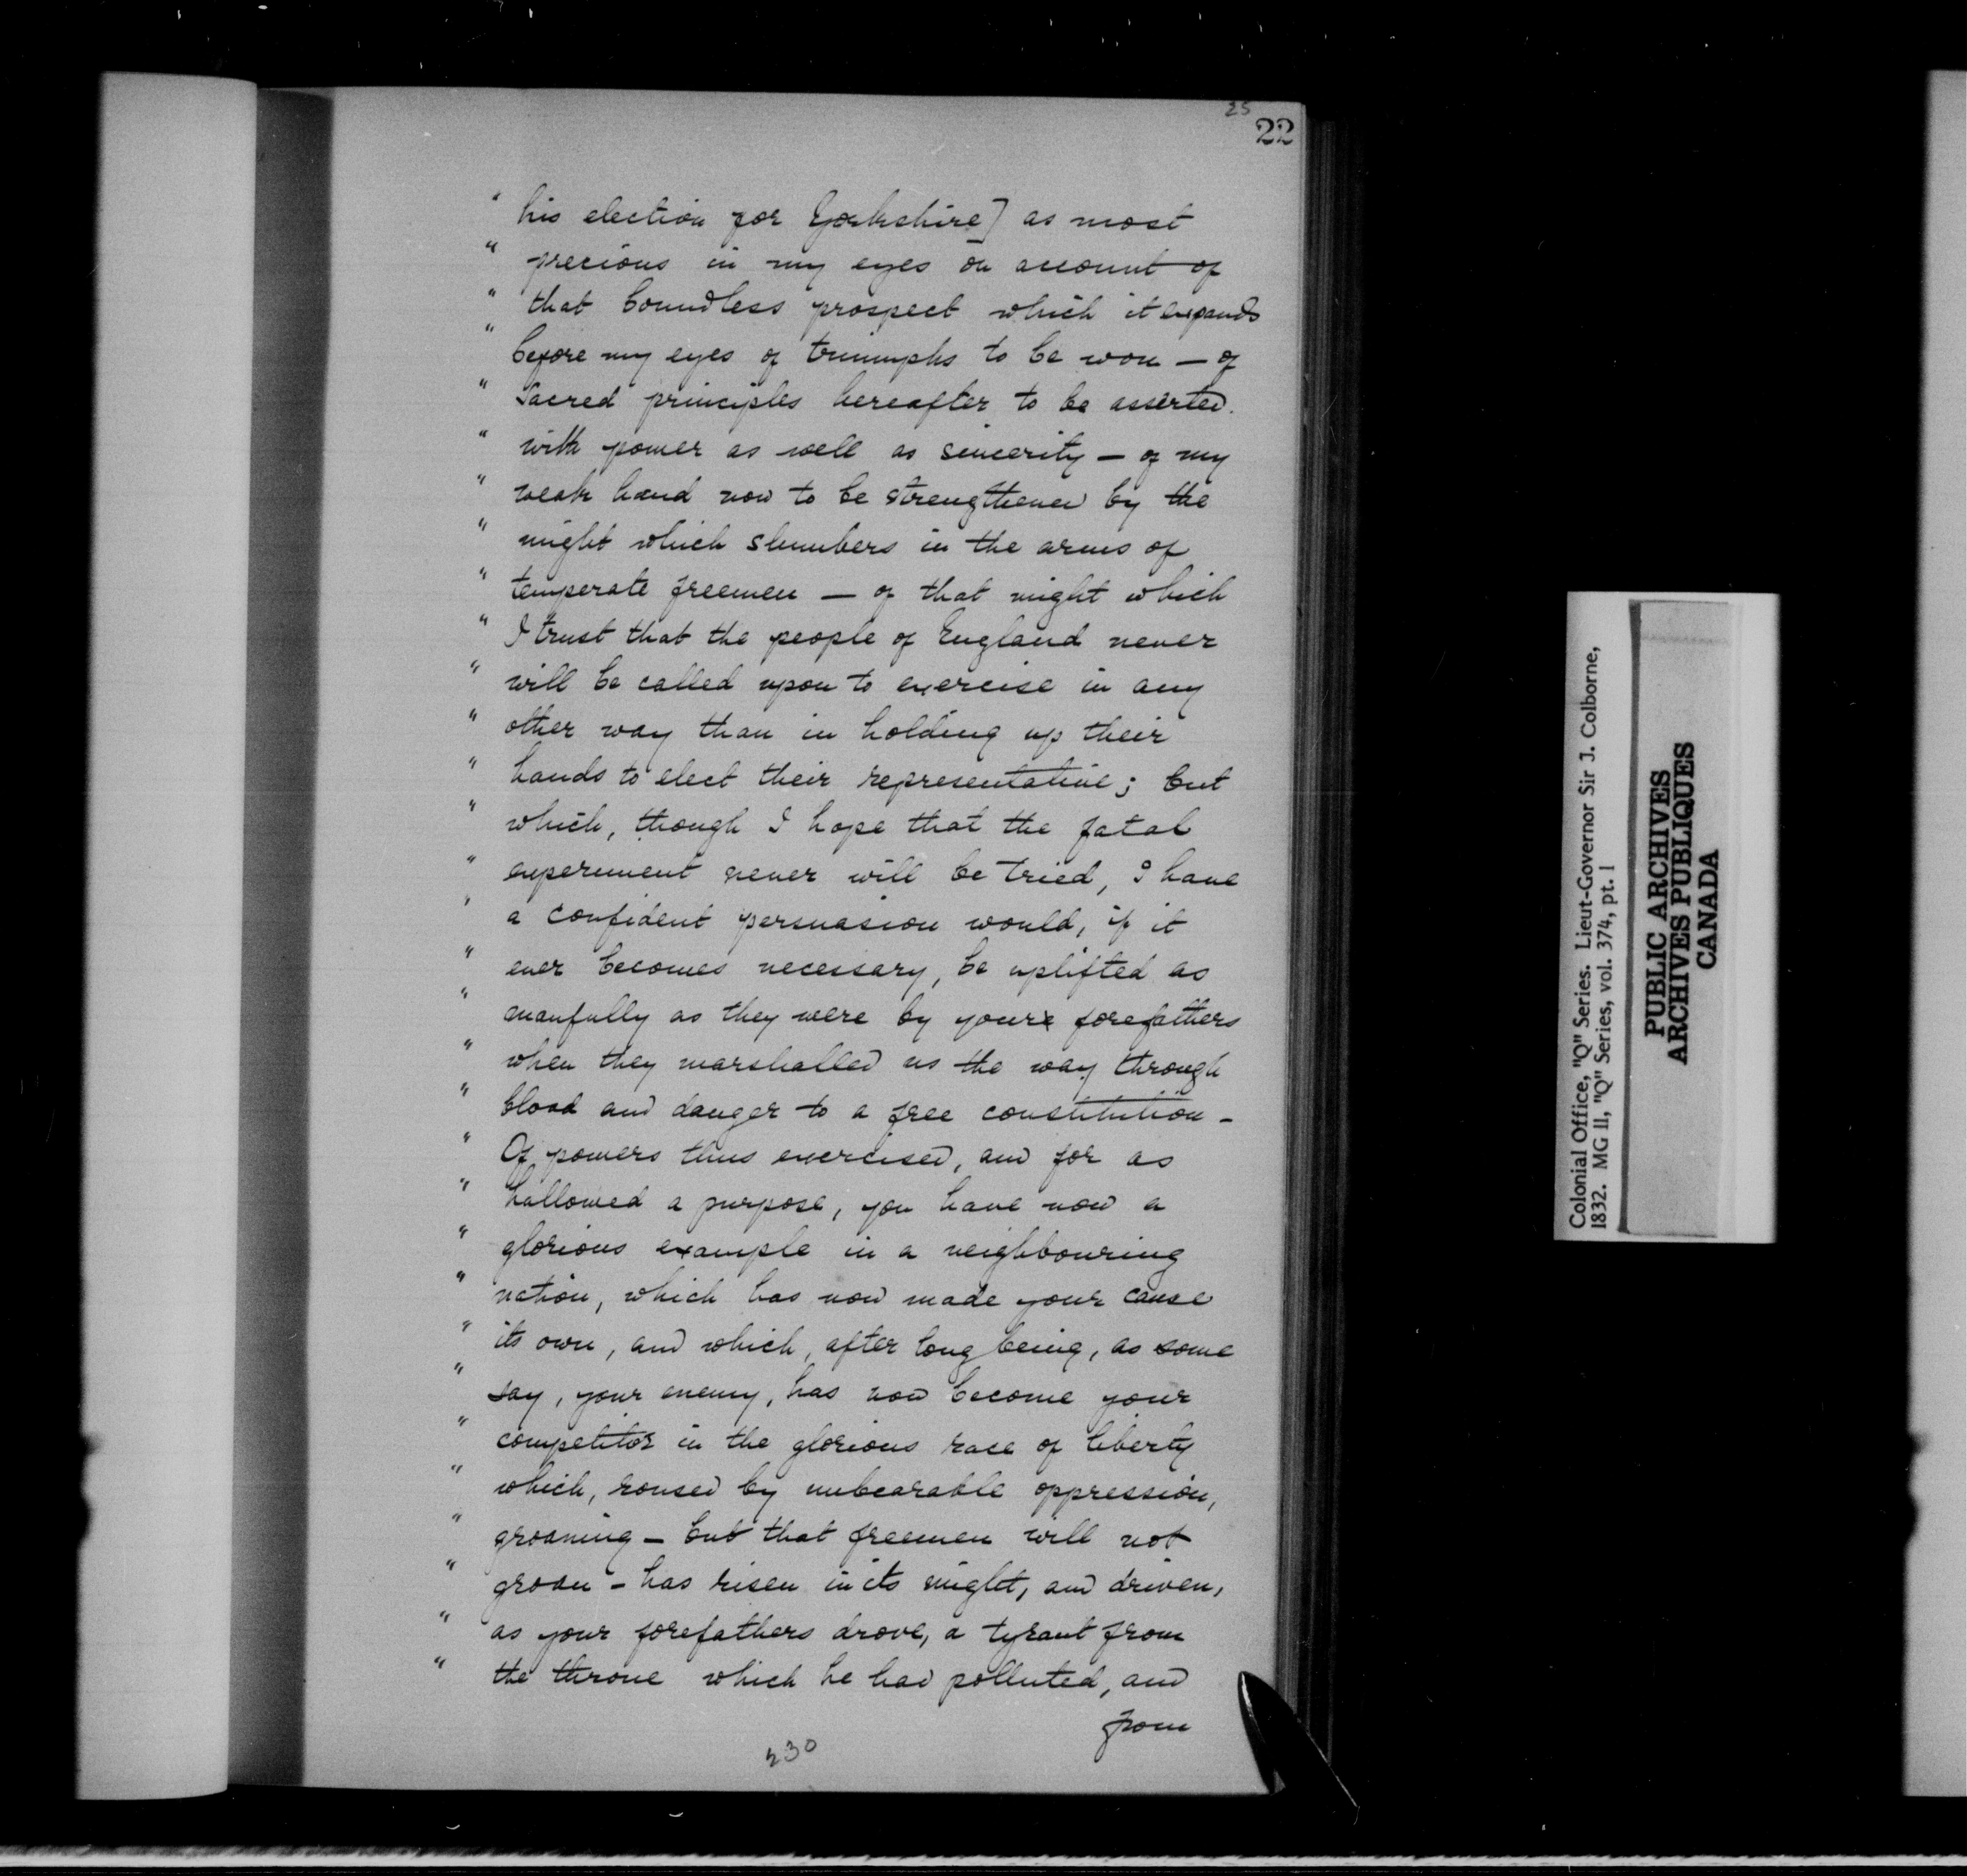 25
22
" his election for Yorkshire] as most
" precious in my eyes on account of
" that boundless prospect which it expands
" before my eyes of triumphs to be won — of
" sacred principles hereafter to be asserted.
" with power as well as sincerity — of my
" weak hand now to be strengthened by the
" might which slumbers in the arms of
" temperate freemen — of that might which
" I trust that the people of England never
" will be called upon to exercise in any
" other way than in holding up their
" hands to elect their representative; but
" which, though I hope that the fatal
" experiment never will be tried, I have
" a confident persuasion would, if it
" ever becomes necessary, be uplifted as
" manfully as they were by your forefathers
" when they marshalled us the way through
" blood and danger to a free constitution -
" Of powers thus exercised, and for as
" hallowed a purpose, you have now a
" glorious example in a neighbouring
" nation, which has now made your cause
" its own, and which, after long being, as some
" say, your enemy, has now become your
" competitor in the glorious race of liberty
" which, roused by unbearable oppression,
" groaning - but that freemen will not
" groan - has risen in its might, and driven,
" as your forefathers drove, a tyrant from
" the throne which he had polluted, and
from
230
Colonial Office, "Q" Series. Lieut-Governor Sir J. Colborne,
1832. MG 11, "Q" Series, vol. 374, pt. 1
PUBLIC ARCHIVES
ARCHIVES PUBLIQUES
CANADA